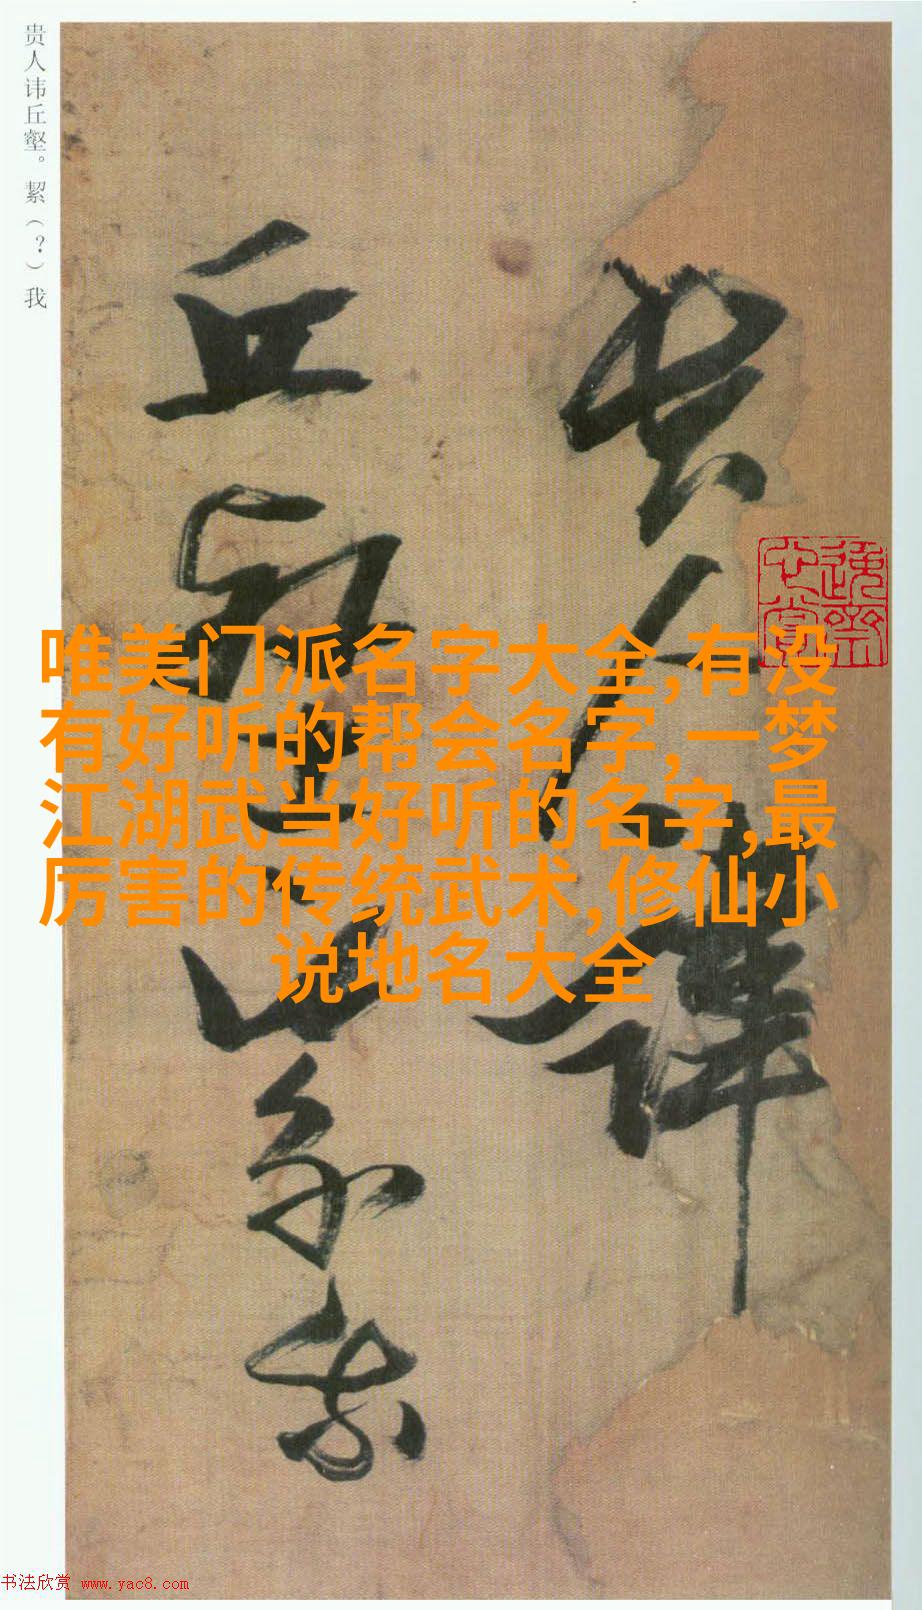 贵人讳丘壑。絜（？）我
贵人讳
丘壑。絜我
唯美门派名字大全,有没
有好听的帮会名字,一梦
江湖武当好听的名字,最
厉害的传统武术,修仙小
说地名大全
书法欣赏 www.yac8.com